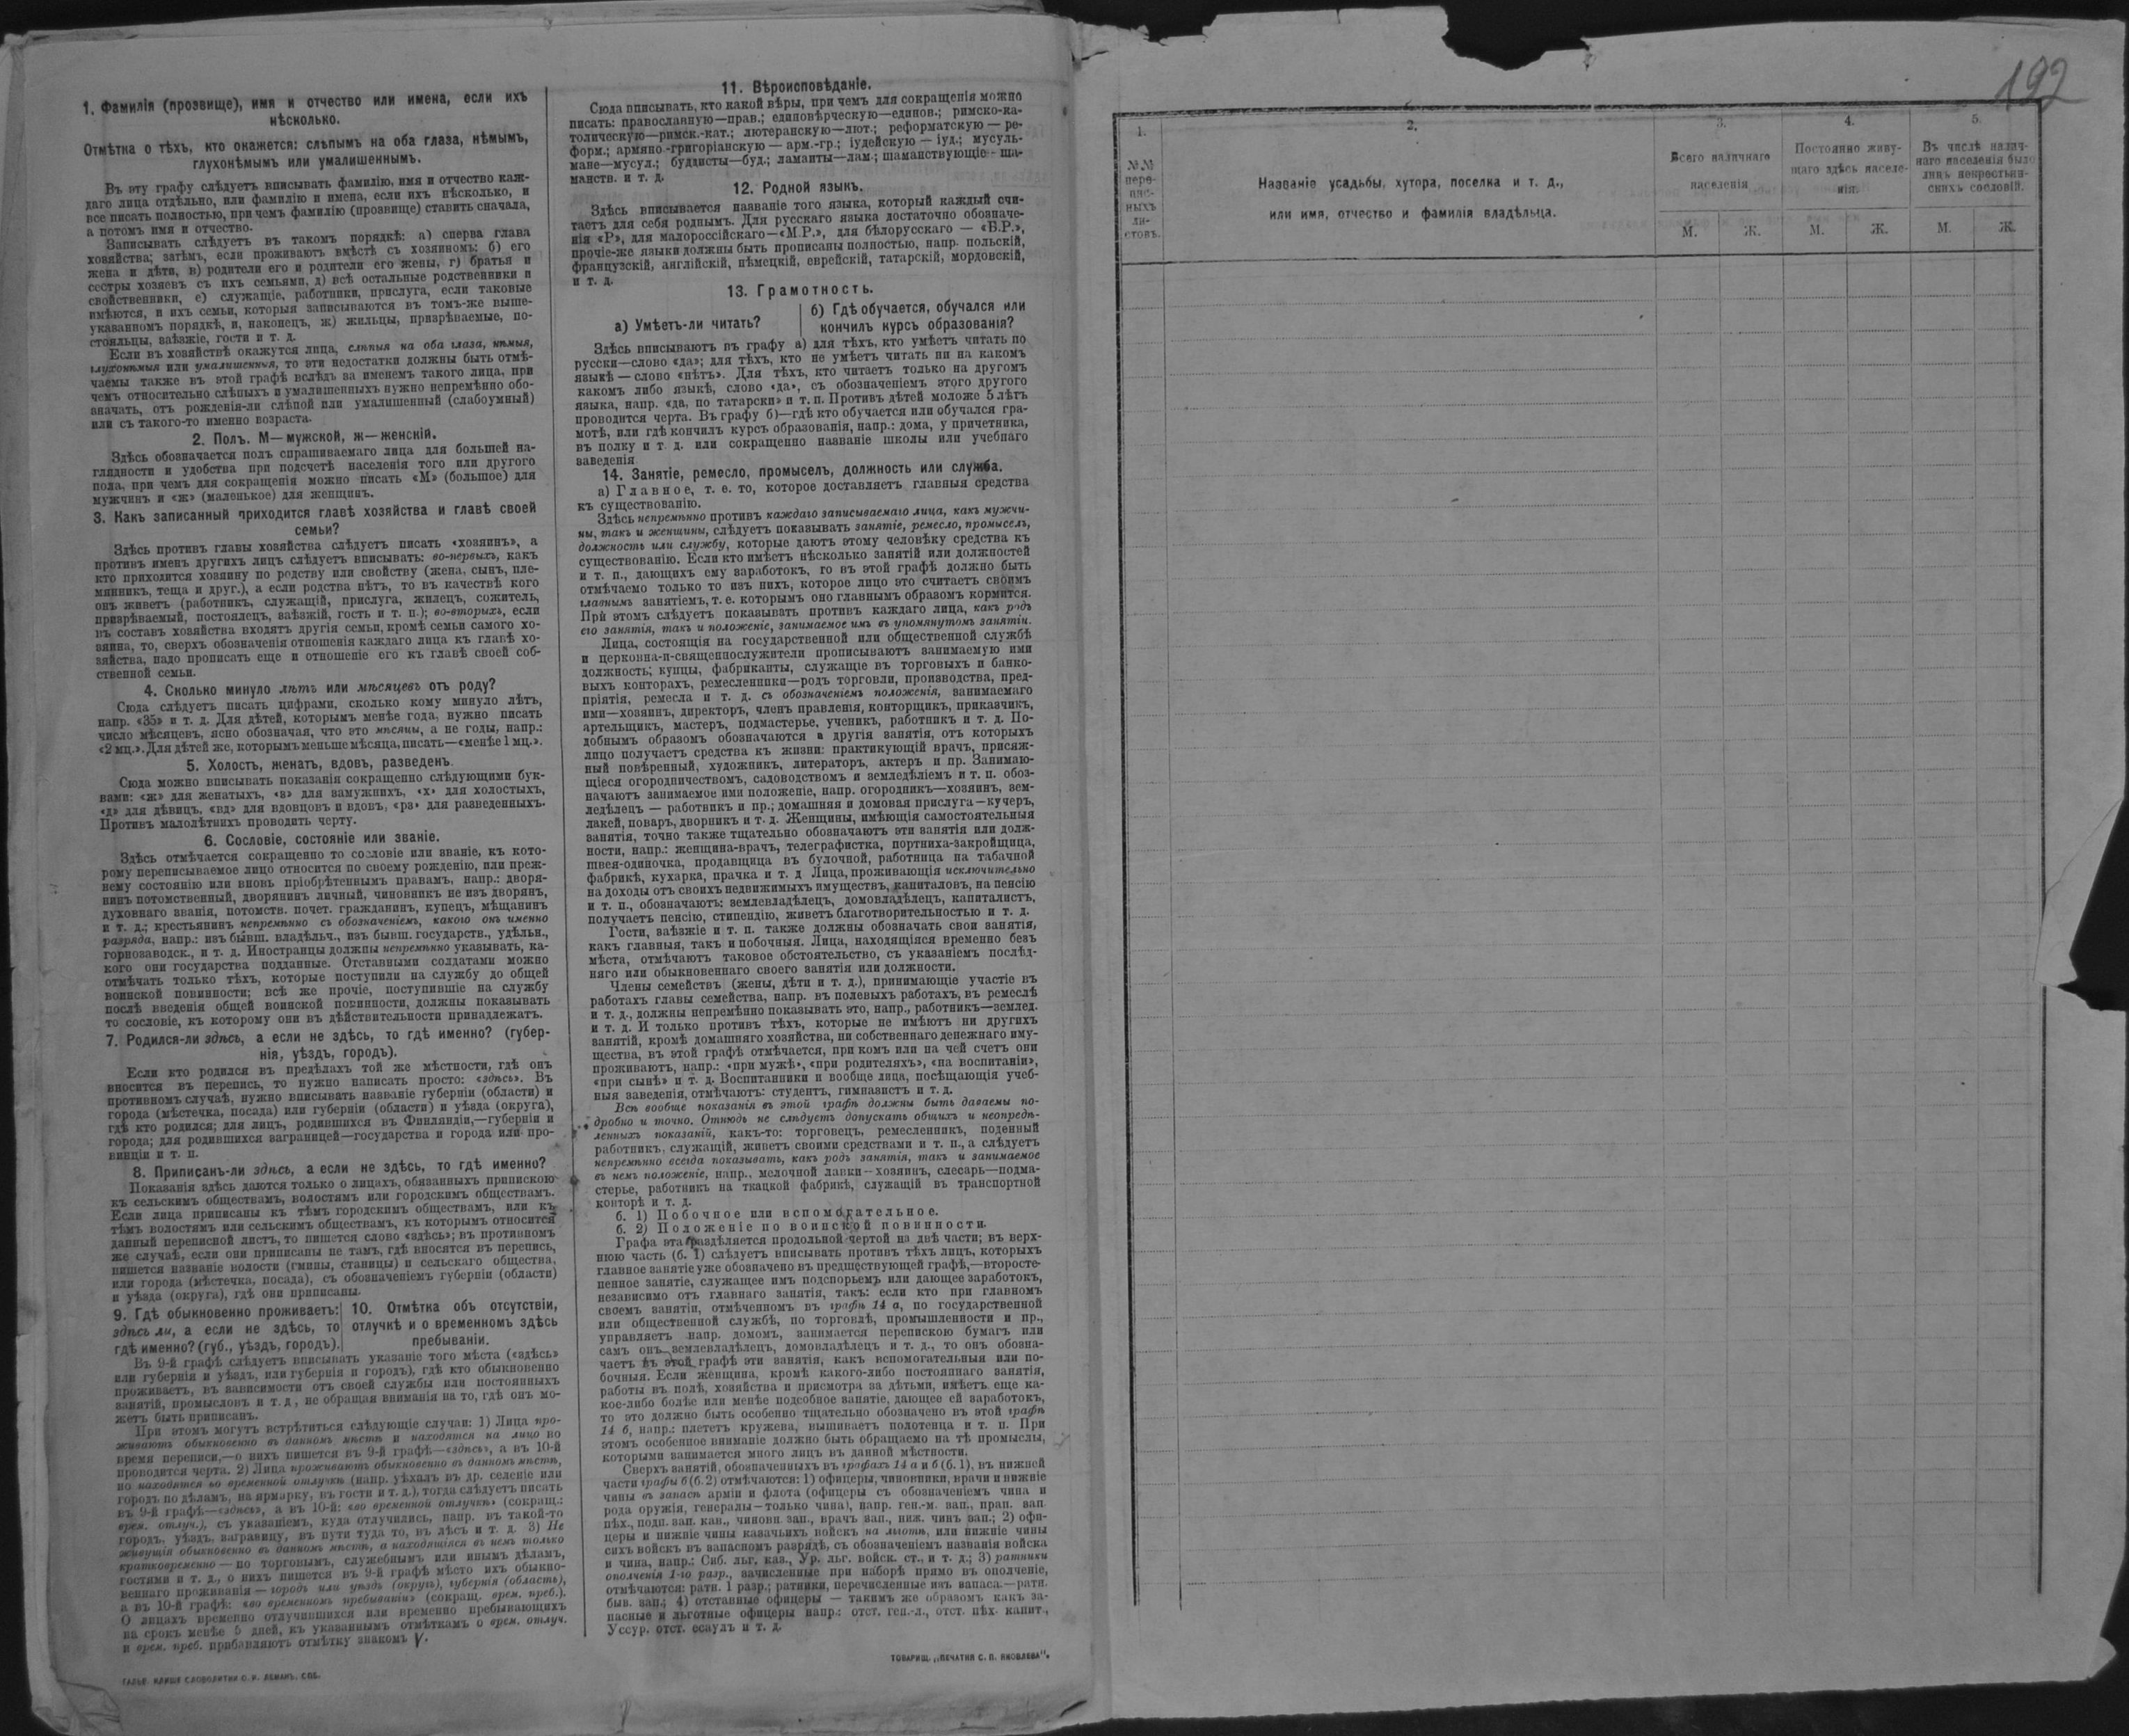 1. Фамилія (прозвище), имя и отчество или имена, если ихъ
нѣсколько.
Отмѣтка о тѣхъ, кто окажется: слѣпымъ на оба глаза, нѣмымъ,
глухонѣмымъ или умалишеннымъ.
Въ эту графу слѣдуетъ вписывать фамилію, имя и отчество каж-
даго лица отдѣльно, или фамилію и имена, если ихъ нѣсколько, и
все писать полностью, при чемъ фамилію (прозвище) ставить сначала,
а потомъ имя и отчество.
Записывать слѣдуетъ въ такомъ порядкѣ: а) сперва глава
хозяйства; затѣмъ, если проживаютъ вмѣстѣ съ хозяиномъ: б) его
жена и дѣти, в) родители его и родители его жены, г) братья и
сестры хозяевъ съ ихъ семьями, д) всѣ остальные родственники и
свойственники, е) служащіе, работники, прислуга, если таковые
имѣются, и ихъ семьи, которыя записываются въ томъ-же выше-
указанномъ порядкѣ, и, наконецъ, ж) жильцы, призрѣваемые, по-
стояльцы, заѣзжіе, гости и т. д.
Если въ хозяйствѣ окажутся лица, слѣпыя на оба глаза, нѣмыя,
глухонѣмыя или умалишенныя, то эти недостатки должны быть отмѣ-
чаемы также въ этой графѣ вслѣдъ за именемъ такого лица, при
чемъ относительно слѣпыхъ и умалишенныхъ нужно непремѣнно обо-
значать, отъ рожденія-ли слѣпой или умалишенный (слабоумный)
или съ такого-то именно возраста.
2. Полъ. М—мужской, ж—женскій.
Здѣсь обозначается полъ спрашиваемаго лица для большей на-
глядности и удобства при подсчетѣ населенія того или другого
пола, при чемъ для сокращенія можно писать «М» (большое) для
мужчинъ и «ж» (маленькое) для женщинъ.
3. Какъ записанный приходится главѣ хозяйства и главѣ своей
семьи?
Здѣсь противъ главы хозяйства слѣдуетъ писать «хозяинъ», а
противъ именъ другихъ лицъ слѣдуетъ вписывать: во-первыхъ, какъ
кто приходится хозяину по родству или свойству (жена, сынъ, пле-
мянникъ, теща и друг.), а если родства нѣтъ, то въ качествѣ кого
онъ живетъ (работникъ, служащій, прислуга, жилецъ, сожитель,
призрѣваемый, постоялецъ, заѣзжій, гость и т. п.); во-вторыхъ, если
въ составъ хозяйства входятъ другія семьи, кромѣ семьи самого хо-
зяина, то, сверхъ обозначенія отношенія каждаго лица къ главѣ хо-
зяйства, надо прописать еще и отношеніе его къ главѣ своей соб-
ственной семьи.
4. Сколько минуло лѣтъ или мѣсяцевъ отъ роду?
Сюда слѣдуетъ писать цифрами, сколько кому минуло лѣтъ,
напр. «35» и т. д. Для дѣтей, которымъ менѣе года, нужно писать
число мѣсяцевъ, ясно обозначая, что это мѣсяцы, а не годы, напр.:
«2 мц.». Для дѣтей же, которымъ меньше мѣсяца, писать—«менѣе 1 мц.».
5. Холостъ, женатъ, вдовъ, разведенъ.
Сюда можно вписывать показанія сокращенно слѣдующими бук-
вами: «ж» для женатыхъ, «з» для замужнихъ, «х» для холостыхъ,
«д» для дѣвицъ, «вд» для вдовцовъ и вдовъ, «рз» для разведенныхъ.
Противъ малолѣтнихъ проводить черту.
6. Сословіе, состояніе или званіе.
Здѣсь отмѣчается сокращенно то сословіе или званіе, къ кото-
рому переписываемое лицо относится по своему рожденію, или преж-
нему состоянію или вновь пріобрѣтеннымъ правамъ, напр.: дворя-
нинъ потомственный, дворянинъ личный, чиновникъ не изъ дворянъ,
духовнаго званія, потомств. почет. гражданинъ, купецъ, мѣщанинъ
и т. д.; крестьянинъ непремѣнно съ обозначеніемъ, какого онъ именно
разряда, напр.: изъ бывш. владѣльч., изъ бывш. государств., удѣльн.,
горнозаводск., и т. д. Иностранцы должны непремѣнно указывать, ка-
кого они государства подданные. Отставными солдатами можно
отмѣчать только тѣхъ, которые поступили на службу до общей
воинской повинности; всѣ же прочіе, поступившіе на службу
послѣ введенія общей воинской повинности, должны показывать
то сословіе, къ которому они въ дѣйствительности принадлежатъ.
7. Родился-ли здѣсь, а если не здѣсь, то гдѣ именно? (губер-
нія, уѣздъ, городъ).
Если кто родился въ предѣлахъ той же мѣстности, гдѣ онъ
вносится въ перепись, то нужно написать просто: «здѣсь». Въ
противномъ случаѣ, нужно вписывать названіе губерніи (области) и
города (мѣстечка, посада) или губерніи (области) и уѣзда (округа),
гдѣ кто родился; для лицъ, родившихся въ Финляндіи,—губерніи и
города; для родившихся заграницей—государства и города или про-
винціи и т. п.
8. Приписанъ-ли здѣсь, а если не здѣсь, то гдѣ именно?
Показанія здѣсь даются только о лицахъ, обязанныхъ припискою
къ сельскимъ обществамъ, волостямъ или городскимъ обществамъ.
Если лица приписаны къ тѣмъ городскимъ обществамъ, или къ
тѣмъ волостямъ или сельскимъ обществамъ, къ которымъ относится
данный переписной листъ, то пишется слово «здѣсь»; въ противномъ
же случаѣ, если они приписаны не тамъ, гдѣ вносятся въ перепись,
пишется названіе волости (гмины, станицы) и сельскаго общества,
или города (мѣстечка, посада), съ обозначеніемъ губерніи (области)
и уѣзда (округа), гдѣ они приписаны.
9. Гдѣ обыкновенно проживаетъ:
здѣсь ли, а если не здѣсь, то
гдѣ именно? (губ., уѣздъ, городъ).
10. Отмѣтка объ отсутствіи,
отлучкѣ и о временномъ здѣсь
пребываніи.
Въ 9-й графѣ слѣдуетъ вписывать указаніе того мѣста («здѣсь»
или губернія и уѣздъ, или губернія и городъ), гдѣ кто обыкновенно
проживаетъ, въ зависимости отъ своей службы или постоянныхъ
занятій, промысловъ и т. д., не обращая вниманія на то, гдѣ онъ мо-
жетъ быть приписанъ.
При этомъ могутъ встрѣтиться слѣдующіе случаи: 1) Лица про-
живаютъ обыкновенно въ данномъ мѣстѣ и находятся на лицо во
время переписи,—о нихъ пишется въ 9-й графѣ—«здѣсь», а въ 10-й
проводится черта. 2) Лица проживаютъ обыкновенно въ данномъ мѣстѣ,
но находятся во временной отлучкѣ (напр. уѣхалъ въ др. селеніе или
городъ по дѣламъ, на ярмарку, въ гости и т. д.), тогда слѣдуетъ писать
въ 9-й графѣ—«здѣсь», а въ 10-й: «во временной отлучкѣ» (сокращ.:
врем. отлуч.), съ указаніемъ, куда отлучились, напр. въ такой-то
городъ, уѣздъ, заграницу, въ пути туда то, въ лѣсъ и т. д. 3) Не
живущія обыкновенно въ данномъ мѣстѣ, а находящіяся въ немъ только
кратковременно — по торговымъ, служебнымъ или инымъ дѣламъ,
гостями и т. д., о нихъ пишется въ 9-й графѣ мѣсто ихъ обыкно-
веннаго проживанія — городъ или уѣздъ (округъ), губернія (область),
а въ 10-й графѣ: «во временномъ пребываніи» (сокращ. врем. преб.).
О лицахъ временно отлучившихся или временно пребывающихъ
на срокъ менѣе 5 дней, къ указаннымъ отмѣткамъ о врем. отлуч.
и врем. преб. прибавляютъ отмѣтку знакомъ V.
ГАЛЬВ. КЛИШЕ СЛОВОЛИТНИ О. И. ЛЕМАНЪ, СПБ.
11. Вѣроисповѣданіе.
Сюда вписывать, кто какой вѣры, при чемъ для сокращенія можно
писать: православную—прав.; единовѣрческую—единов.; римско-ка-
толическую—римск.-кат.; лютеранскую—лют.; реформатскую — ре-
форм.; армяно-григоріанскую — арм.-гр.; іудейскую — іуд.; мусуль-
мане—мусул.; буддисты—буд.; ламаиты—лам.; шаманствующіе - ша-
манств. и т. д.
12. Родной языкъ.
Здѣсь вписывается названіе того языка, который каждый счи-
таетъ для себя роднымъ. Для русскаго языка достаточно обозначе-
нія «Р», для малороссійскаго—«М.Р.», для бѣлорусскаго — «Б.Р.»,
прочіе-же языки должны быть прописаны полностью, напр. польскій,
французскій, англійскій, нѣмецкій, еврейскій, татарскій, мордовскій,
и т. д.
13. Грамотность.
а) Умѣетъ-ли читать?
б) Гдѣ обучается, обучался или
кончилъ курсъ образованія?
Здѣсь вписываютъ въ графу а) для тѣхъ, кто умѣетъ читать по
русски—слово «да»; для тѣхъ, кто не умѣетъ читать ни на какомъ
языкѣ — слово «нѣтъ». Для тѣхъ, кто читаетъ только на другомъ
какомъ либо языкѣ, слово «да», съ обозначеніемъ этого другого
языка, напр. «да, по татарски» и т. п. Противъ дѣтей моложе 5 лѣтъ
проводится черта. Въ графу б)—гдѣ кто обучается или обучался гра-
мотѣ, или гдѣ кончилъ курсъ образованія, напр.: дома, у причетника,
въ полку и т. д. или сокращенно названіе школы или учебнаго
заведенія
14. Занятіе, ремесло, промыселъ, должность или служба.
а) Главное, т. е. то, которое доставляетъ главныя средства
къ существованію.
Здѣсь непремѣнно противъ каждаго записываемаго лица, какъ мужчи-
ны, такъ и женщины, слѣдуетъ показывать занятіе, ремесло, промыселъ,
должность или службу, которые даютъ этому человѣку средства къ
существованію. Если кто имѣетъ нѣсколько занятій или должностей
и т. п., дающихъ ему заработокъ, то въ этой графѣ должно быть
отмѣчаемо только то изъ нихъ, которое лицо это считаетъ своимъ
главнымъ занятіемъ, т. е. которымъ оно главнымъ образомъ кормится.
При этомъ слѣдуетъ показывать противъ каждаго лица, какъ родъ
его занятія, такъ и положеніе, занимаемое имъ въ упомянутомъ занятіи.
Лица, состоящія на государственной или общественной службѣ
и церковно-и-священнослужители прописываютъ занимаемую ими
должность; купцы, фабриканты, служащіе въ торговыхъ и банко-
выхъ конторахъ, ремесленники—родъ торговли, производства, пред-
пріятія, ремесла и т. д. съ обозначеніемъ положенія, занимаемаго
ими—хозяинъ, директоръ, членъ правленія, конторщикъ, приказчикъ,
артельщикъ, мастеръ, подмастерье, ученикъ, работникъ и т. д. По-
добнымъ образомъ обозначаются и другія занятія, отъ которыхъ
лицо получаетъ средства къ жизни: практикующій врачъ, присяж-
ный повѣренный, художникъ, литераторъ, актеръ и пр. Занимаю-
щіеся огородничествомъ, садоводствомъ и земледѣліемъ и т. п. обоз-
начаютъ занимаемое ими положеніе, напр. огородникъ—хозяинъ, зем-
ледѣлецъ — работникъ и пр.; домашняя и домовая прислуга—кучеръ,
лакей, поваръ, дворникъ и т. д. Женщины, имѣющія самостоятельныя
занятія, точно также тщательно обозначаютъ эти занятія или долж-
ности, напр.: женщина-врачъ, телеграфистка, портниха-закройщица,
швея-одиночка, продавщица въ булочной, работница на табачной
фабрикѣ, кухарка, прачка и т. д Лица, проживающія исключительно
на доходы отъ своихъ недвижимыхъ имуществъ, капиталовъ, на пенсію
и т. п., обозначаютъ: землевладѣлецъ, домовладѣлецъ, капиталистъ,
получаетъ пенсію, стипендію, живетъ благотворительностью и т. д.
Гости, заѣзжіе и т. п. также должны обозначать свои занятія,
какъ главныя, такъ и побочныя. Лица, находящіяся временно безъ
мѣста, отмѣчаютъ таковое обстоятельство, съ указаніемъ послѣд-
няго или обыкновеннаго своего занятія или должности.
Члены семействъ (жены, дѣти и т. д.), принимающіе участіе въ
работахъ главы семейства, напр. въ полевыхъ работахъ, въ ремеслѣ
и т. д., должны непремѣнно показывать это, напр., работникъ—землед.
и т. д. И только противъ тѣхъ, которые не имѣютъ ни другихъ
занятій, кромѣ домашняго хозяйства, ни собственнаго денежнаго иму-
щества, въ этой графѣ отмѣчается, при комъ или на чей счетъ они
проживаютъ, напр.: «при мужѣ», «при родителяхъ», «на воспитаніи»,
«при сынѣ» и т. д. Воспитанники и вообще лица, посѣщающія учеб-
ныя заведенія, отмѣчаютъ: студентъ, гимназистъ и т. д.
Всѣ вообще показанія въ этой графѣ должны быть даваемы по-
дробно и точно. Отнюдь не слѣдуетъ допускать общихъ и неопредѣ-
ленныхъ показаній, какъ-то: торговецъ, ремесленникъ, поденный
работникъ, служащій, живетъ своими средствами и т. п., а слѣдуетъ
непремѣнно всегда показывать, какъ родъ занятія, такъ и занимаемое
въ немъ положеніе, напр., мелочной лавки—хозяинъ, слесарь—подма-
стерье, работникъ на ткацкой фабрикѣ, служащій въ транспортной
конторѣ и т. д.
б. 1) Побочное или вспомогательное.
б. 2) Положеніе по воинской повинности.
Графа эта раздѣляется продольной чертой на двѣ части; въ верх-
нюю часть (б. 1) слѣдуетъ вписывать противъ тѣхъ лицъ, которыхъ
главное занятіе уже обозначено въ предшествующей графѣ,—второсте-
пенное занятіе, служащее имъ подспорьемъ или дающее заработокъ,
независимо отъ главнаго занятія, такъ: если кто при главномъ
своемъ занятіи, отмѣченномъ въ графѣ 14 а, по государственной
или общественной службѣ, по торговлѣ, промышленности и пр.,
управляетъ напр. домомъ, занимается перепискою бумагъ или
самъ онъ землевладѣлецъ, домовладѣлецъ и т. д., то онъ обозна-
чаетъ въ этой графѣ эти занятія, какъ вспомогательныя или по-
бочныя. Если женщина, кромѣ какого-либо постояннаго занятія,
работы въ полѣ, хозяйства и присмотра за дѣтьми, имѣетъ еще ка-
кое-либо болѣе или менѣе подсобное занятіе, дающее ей заработокъ,
то это должно быть особенно тщательно обозначено въ этой графѣ
14 б, напр.: плететъ кружева, вышиваетъ полотенца и т. п. При
этомъ особенное вниманіе должно быть обращаемо на тѣ промыслы,
которыми занимается много лицъ въ данной мѣстности.
Сверхъ занятій, обозначенныхъ въ графахъ 14 а и б (б. 1), въ нижней
части графы б (б. 2) отмѣчаются: 1) офицеры, чиновники, врачи и нижніе
чины въ запасѣ арміи и флота (офицеры съ обозначеніемъ чина и
рода оружія, генералы—только чина), напр. ген.-м. зап., прап. зап.
пѣх., подп. зап. кав., чиновн. зап., врачъ зап., ниж. чинъ зап.; 2) офи-
церы и нижніе чины казачьихъ войскъ на льготѣ, или нижніе чины
сихъ войскъ въ запасномъ разрядѣ, съ обозначеніемъ названія войска
и чина, напр.: Сиб. льг. каз., Ур. льг. войск. ст., и т. д.; 3) ратники
ополченія 1-го разр., зачисленные при наборѣ прямо въ ополченіе,
отмѣчаются: ратн. 1 разр.; ратники, перечисленные изъ запаса.—ратн.
быв. зап.; 4) отставные офицеры — такимъ же образомъ какъ за-
пасные и льготные офицеры напр.: отст. ген.-л., отст. пѣх. капит.,
Уссур. отст. есаулъ и т. д.
ТОВАРИЩ. „ПЕЧАТНЯ С. П. ЯКОВЛЕВА".
192
1. 2. 3. 4. 5.
№№
пере-
пис-
ныхъ
ли-
стовъ.
Названіе усадьбы, хутора, поселка и т. д.,
или имя, отчество и фамилія владѣльца.
Всего наличнаго
населенія
Постоянно живу-
щаго здѣсь населе-
нія.
Въ числѣ налич-
наго населенія было
лицъ некрестьян-
скихъ сословій.
М. Ж. М. Ж. М. Ж.